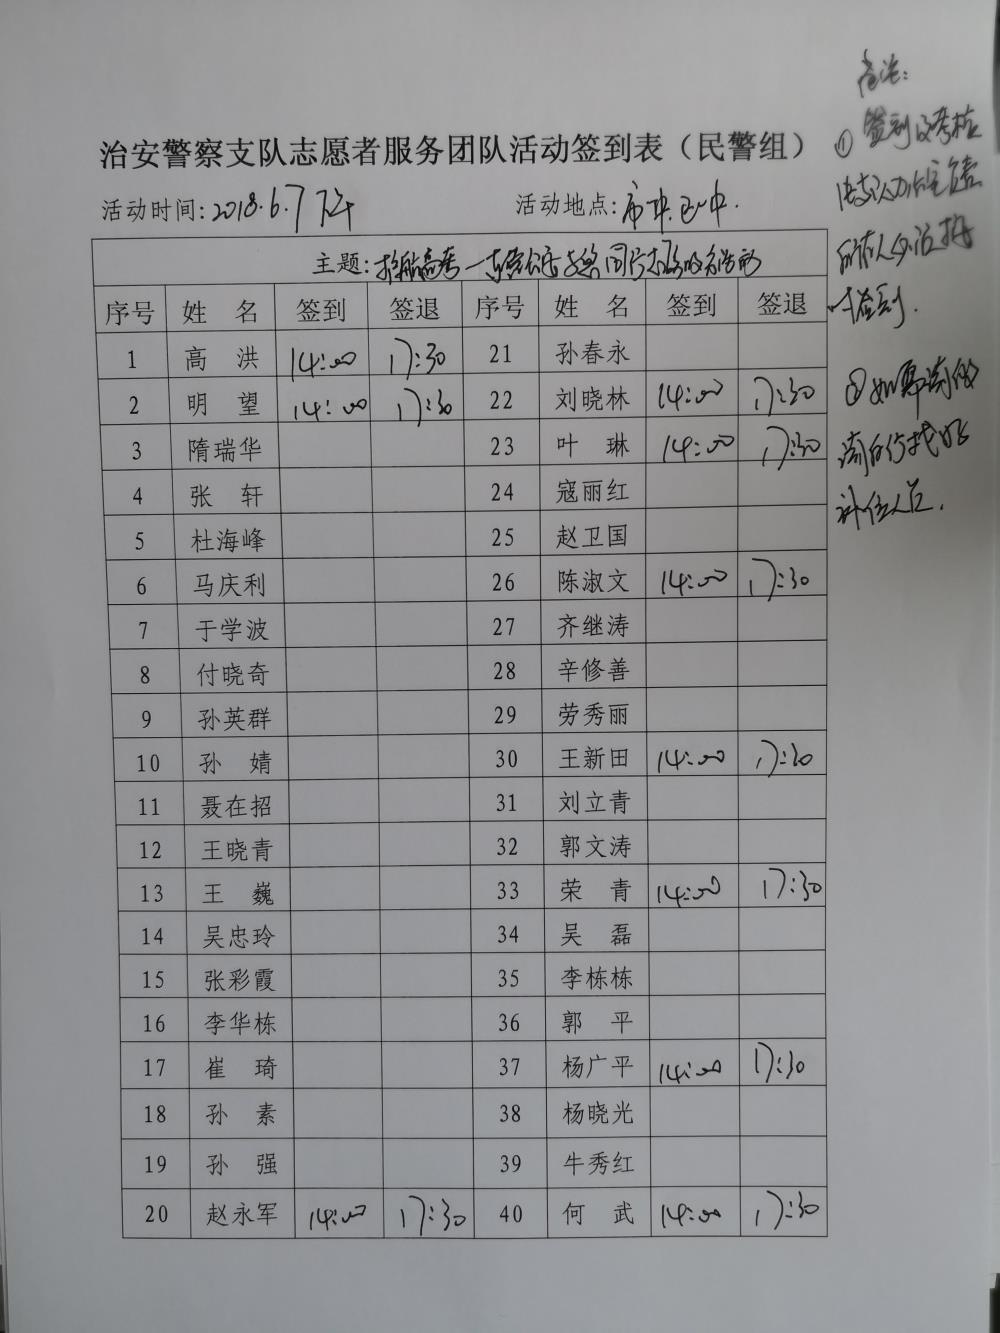 治安警察支队志愿者服务团队活动签到表（民警组）
活动时间:2018.6.7下午 活动地点:
主题:护航高考
序号 姓 名 签到 签退 序号 姓 名 签到 签退
1 高 洪 14:00 17:30 21 孙春永
2 明 望 14:00 17:30 22 刘晓林 14:00 17:30
3 隋瑞华 23 叶 琳 14:00 17:30
4 张 轩 24 寇丽红
5 杜海峰 25 赵卫国
6 马庆利 26 陈淑文 14:00 17:30
7 于学波 27 齐继涛
8 付晓奇 28 辛修善
9 孙英群 29 劳秀丽
10 孙 婧 30 王新田 14:00 17:30
11 聂在招 31 刘立青
12 王晓青 32 郭文涛
13 王 巍 33 荣 青 14:00 17:30
14 吴忠玲 34 吴 磊
15 张彩霞 35 李栋栋
16 李华栋 36 郭 平
17 崔 琦 37 杨广平 14:00 17:30
18 孙 素 38 杨晓光
19 孙 强 39 牛秀红
20 赵永军 14:00 17:30 40 何 武 14:00 17:30
备注:
①签到及考核
签到.
②如需请假
请自行找好
补位人员.